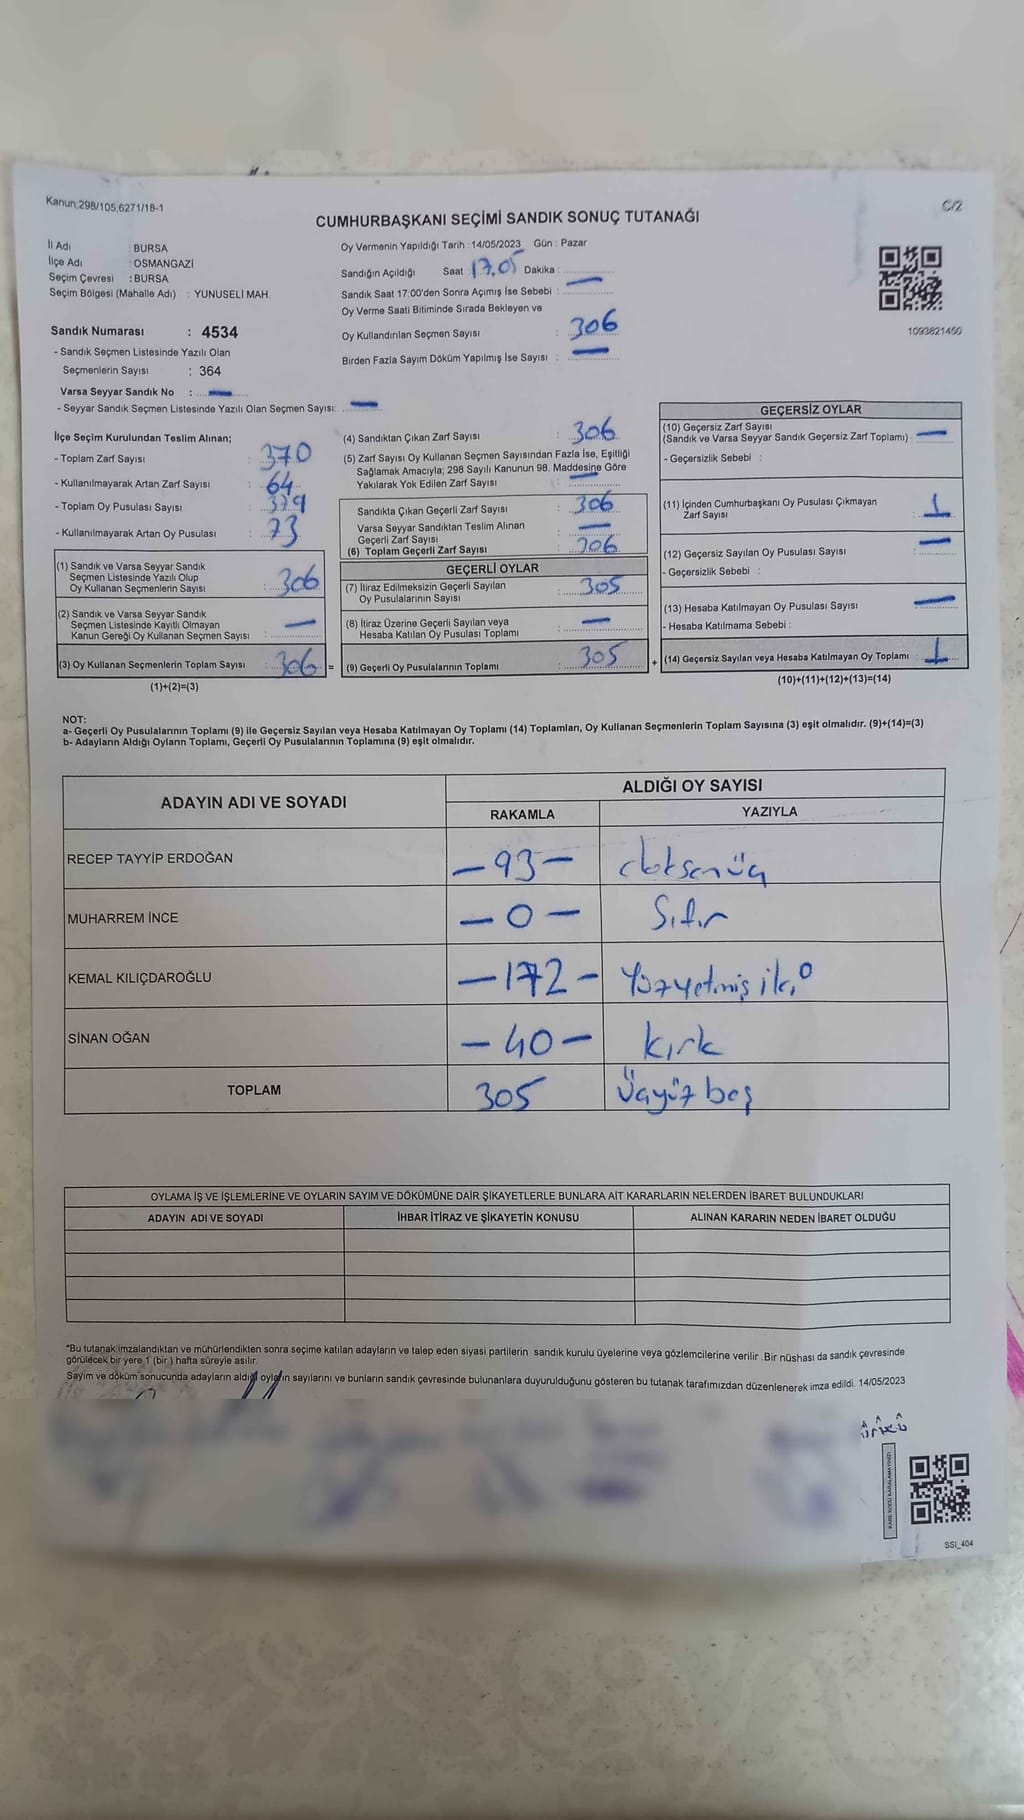 Kanun;298/105,6271/18-1
C/2
CUMHURBAŞKANI SEÇİMİ SANDIK SONUÇ TUTANAĞI
İl Adı : BURSA
İlçe Adı : OSMANGAZİ
Seçim Çevresi : BURSA
Seçim Bölgesi (Mahalle Adı) : YUNUSELİ MAH.
Oy Vermenin Yapıldığı Tarih :14/05/2023 Gün : Pazar
Sandığın Açıldığı Saat 17,05 Dakika :
Sandık Saat 17:00'den Sonra Açımış İse Sebebi : —
Oy Verme Saati Bitiminde Sırada Bekleyen ve
Oy Kullandırılan Seçmen Sayısı : 306
Birden Fazla Sayım Döküm Yapılmış İse Sayısı : —
1093821450
Sandık Numarası : 4534
- Sandık Seçmen Listesinde Yazılı Olan
Seçmenlerin Sayısı : 364
Varsa Seyyar Sandık No : —
- Seyyar Sandık Seçmen Listesinde Yazılı Olan Seçmen Sayısı: —
İlçe Seçim Kurulundan Teslim Alınan;
- Toplam Zarf Sayısı : 370
- Kullanılmayarak Artan Zarf Sayısı : 64
- Toplam Oy Pusulası Sayısı : 379
- Kullanılmayarak Artan Oy Pusulası : 73
(1) Sandık ve Varsa Seyyar Sandık
Seçmen Listesinde Yazılı Olup
Oy Kullanan Seçmenlerin Sayısı : 306
(2) Sandık ve Varsa Seyyar Sandık
Seçmen Listesinde Kayıtlı Olmayan
Kanun Gereği Oy Kullanan Seçmen Sayısı : —
(3) Oy Kullanan Seçmenlerin Toplam Sayısı : 306 =
(1)+(2)=(3)
(4) Sandıktan Çıkan Zarf Sayısı : 306
(5) Zarf Sayısı Oy Kullanan Seçmen Sayısından Fazla İse, Eşitliği
Sağlamak Amacıyla; 298 Sayılı Kanunun 98. Maddesine Göre
Yakılarak Yok Edilen Zarf Sayısı : —
Sandıkta Çıkan Geçerli Zarf Sayısı : 306
Varsa Seyyar Sandıktan Teslim Alınan
Geçerli Zarf Sayısı : —
(6) Toplam Geçerli Zarf Sayısı : 306
GEÇERLİ OYLAR
(7) İtiraz Edilmeksizin Geçerli Sayılan
Oy Pusulalarının Sayısı : 305
(8) İtiraz Üzerine Geçerli Sayılan veya
Hesaba Katılan Oy Pusulası Toplamı : —
(9) Geçerli Oy Pusulalarının Toplamı : 305 +
GEÇERSİZ OYLAR
(10) Geçersiz Zarf Sayısı
(Sandık ve Varsa Seyyar Sandık Geçersiz Zarf Toplamı) : —
- Geçersizlik Sebebi :
(11) İçinden Cumhurbaşkanı Oy Pusulası Çıkmayan
Zarf Sayısı : 1
(12) Geçersiz Sayılan Oy Pusulası Sayısı : —
- Geçersizlik Sebebi :
(13) Hesaba Katılmayan Oy Pusulası Sayısı : —
- Hesaba Katılmama Sebebi :
(14) Geçersiz Sayılan veya Hesaba Katılmayan Oy Toplamı : 1
(10)+(11)+(12)+(13)=(14)
NOT:
a- Geçerli Oy Pusulalarının Toplamı (9) ile Geçersiz Sayılan veya Hesaba Katılmayan Oy Toplamı (14) Toplamları, Oy Kullanan Seçmenlerin Toplam Sayısına (3) eşit olmalıdır. (9)+(14)=(3)
b- Adayların Aldığı Oyların Toplamı, Geçerli Oy Pusulalarının Toplamına (9) eşit olmalıdır.
ADAYIN ADI VE SOYADI
ALDIĞI OY SAYISI
RAKAMLA YAZIYLA
RECEP TAYYİP ERDOĞAN —93— doksanüç
MUHARREM İNCE —0— Sıfır
KEMAL KILIÇDAROĞLU —172— Yüzyetmiş iki
SİNAN OĞAN —40— kırk
TOPLAM 305 Üçyüz beş
OYLAMA İŞ VE İŞLEMLERİNE VE OYLARIN SAYIM VE DÖKÜMÜNE DAİR ŞİKAYETLERLE BUNLARA AİT KARARLARIN NELERDEN İBARET BULUNDUKLARI
ADAYIN ADI VE SOYADI İHBAR İTİRAZ VE ŞİKAYETİN KONUSU ALINAN KARARIN NEDEN İBARET OLDUĞU
*Bu tutanak imzalandıktan ve mühürlendikten sonra seçime katılan adayların ve talep eden siyasi partilerin sandık kurulu üyelerine veya gözlemcilerine verilir .Bir nüshası da sandık çevresinde
görülecek bir yere 1 (bir ) hafta süreyle asılır.
Sayım ve döküm sonucunda adayların aldığı oyların sayılarını ve bunların sandık çevresinde bulunanlara duyurulduğunu gösteren bu tutanak tarafımızdan düzenlenerek imza edildi. 14/05/2023
KARE KODU KARALAMAYINIZ!
SSI_404